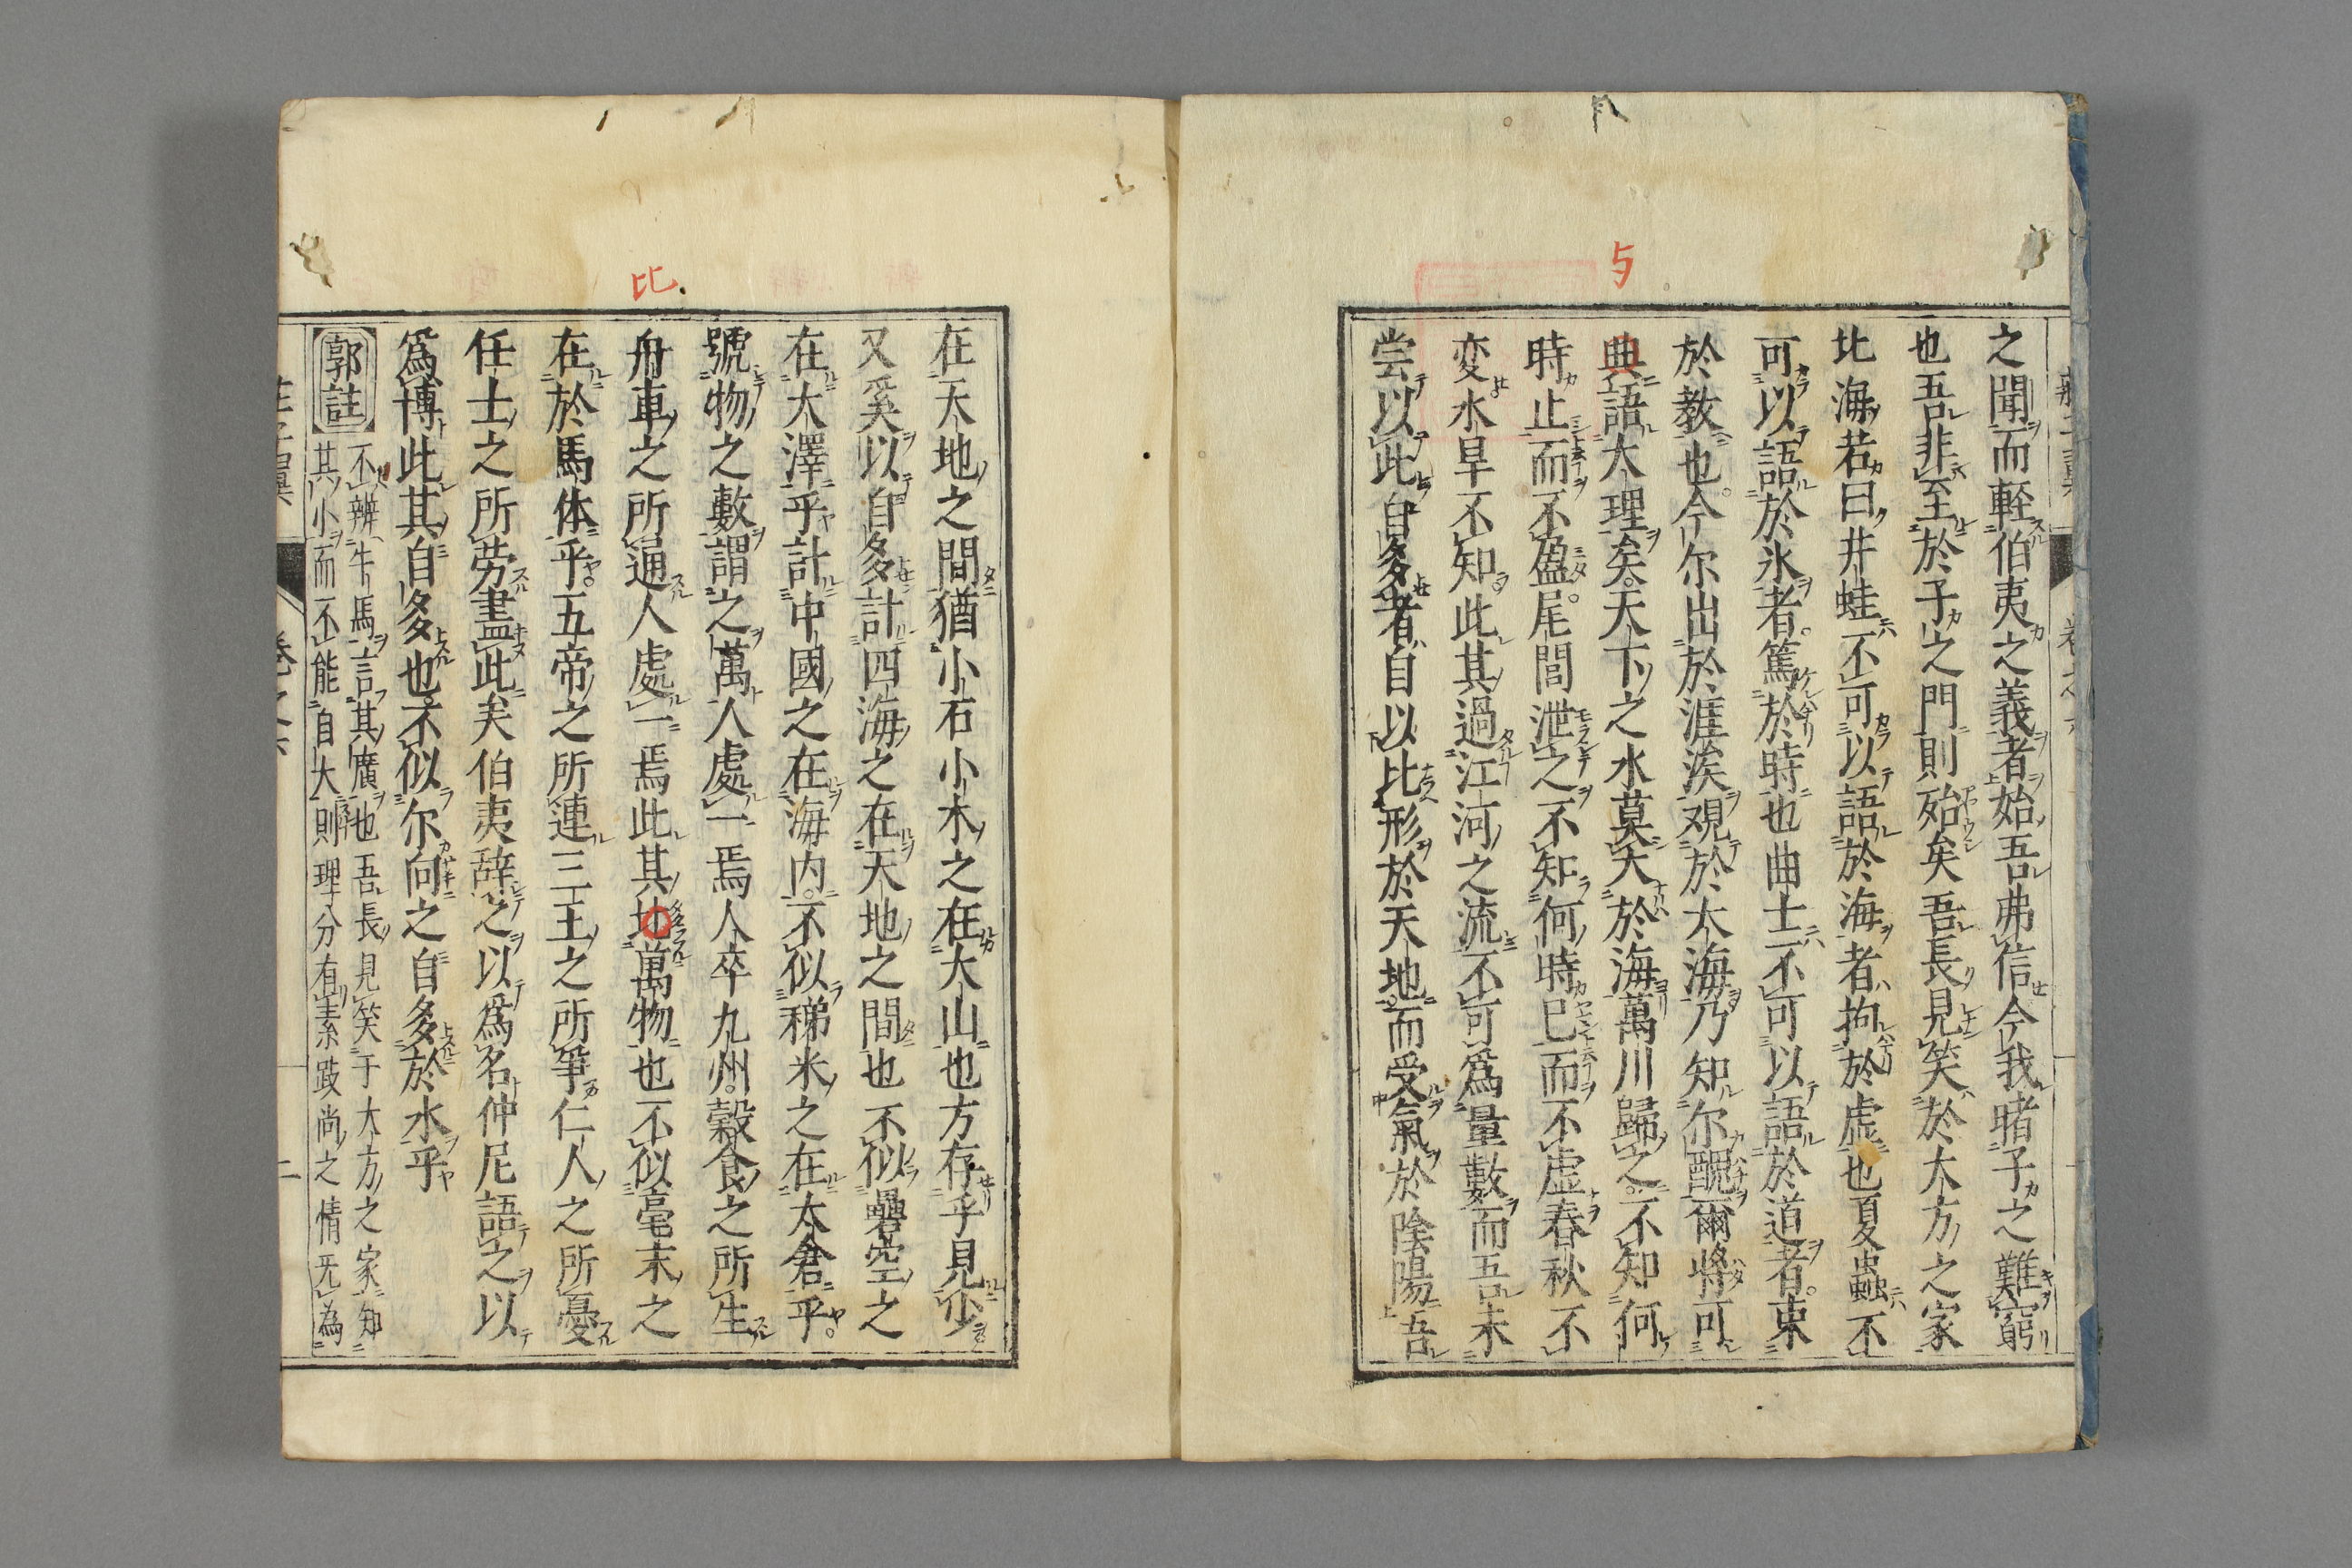 与
之聞而輕伯夷之義者始吾弗信今我睹子之難窮
也吾非至於子之門則殆矣吾長見笑於大方之家
北海若曰井蛙不可以語於海者拘於虚也夏蟲不
可以語於氷者篤於時也曲士不可以語於道者束
於教也今尔出於涯涘观於大海乃知尔醜爾將可
典語大理矣天下之水莫大於海萬川歸之不知何
時止而不盈尾閭泄之不知何時已而不虚春秋不
変水旱不知此其過江河之流不可爲量數而吾未
尝以此自多者自以比形於天地而受氣於陰陽吾
比
在天地之間猶小石小木之在大山也方存乎見少
又奚以自多計四海之在天地之間也不似礨空之
在大澤乎計中國之在海内不似稊米之在太倉乎
號物之數謂之萬人處一焉人卒九州穀食之所生
舟車之所通人處一焉此其地萬物也不似毫末之
在於馬体乎五帝之所連三王之所爭仁人之所憂
任士之所劳盡此矣伯夷辞之以爲名仲尼語之以
爲博此其自多也不似尔向之自多於水乎
郭註
不辨牛馬言其廣也吾長見笑于大方之家知
其小而不能自大則理分有素跂尚之情无為